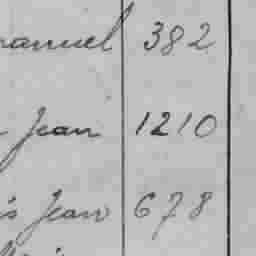 anuel 382
Jean 1210
is Jean 678